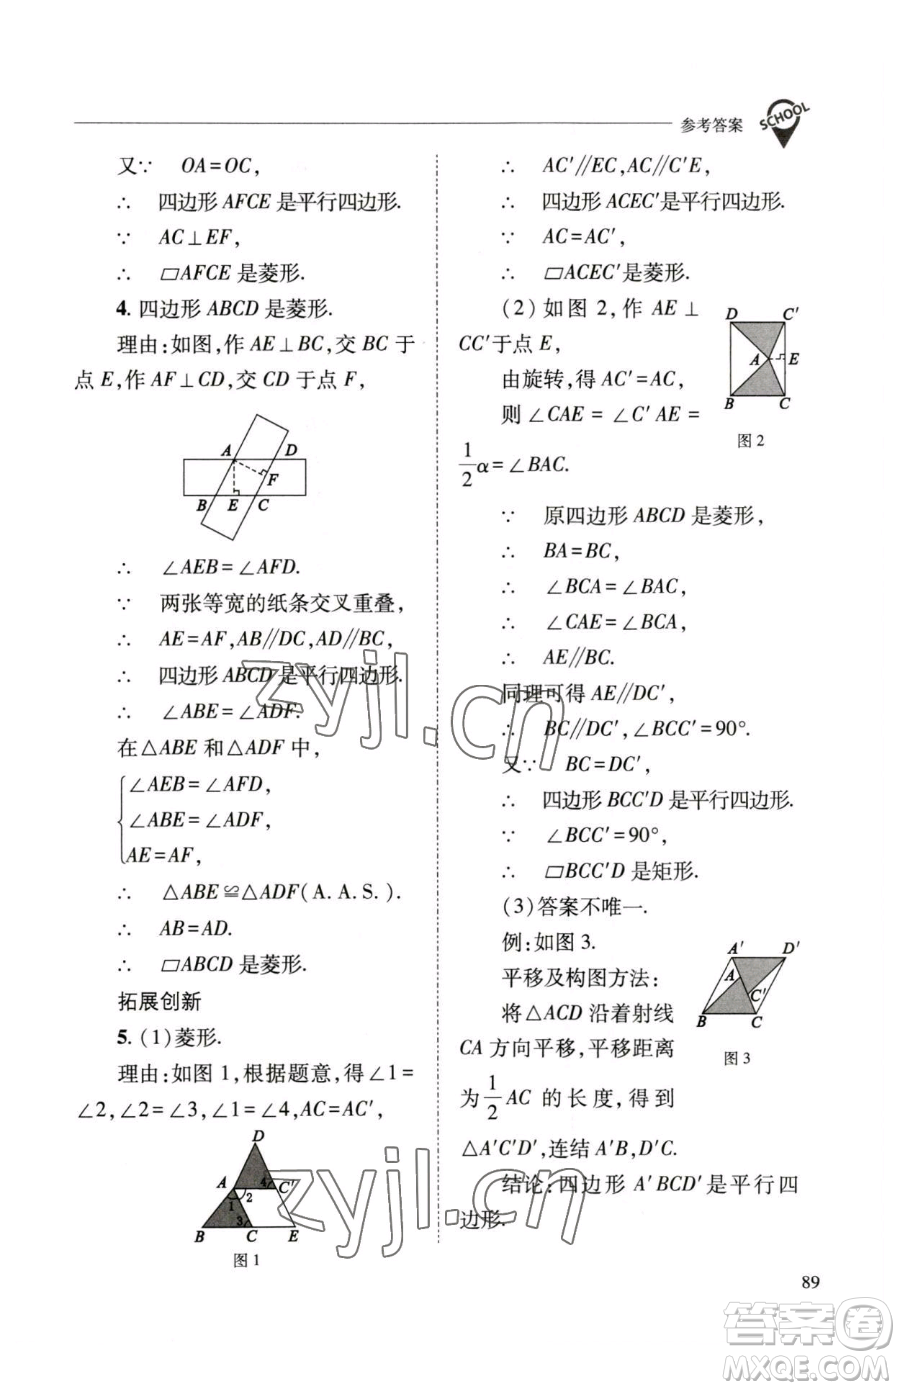 参考答案
SCHOOL
又∵ OA=OC,
∴ 四边形 AFCE 是平行四边形.
∵ AC⊥EF,
∴ ▱AFCE 是菱形.
4. 四边形 ABCD 是菱形.
理由:如图,作 AE⊥BC,交 BC 于
点 E,作 AF⊥CD,交 CD 于点 F,
A D
F
B E C
∴ ∠AEB=∠AFD.
∵ 两张等宽的纸条交叉重叠,
∴ AE=AF,AB∥DC,AD∥BC,
∴ 四边形 ABCD 是平行四边形.
∴ ∠ABE=∠ADF.
在△ABE 和△ADF 中,
∠AEB=∠AFD,
∠ABE=∠ADF,
AE=AF,
∴ △ABE≌△ADF(A.A.S.).
∴ AB=AD.
∴ ▱ABCD 是菱形.
拓展创新
5. (1)菱形.
理由:如图 1,根据题意,得∠1=
∠2,∠2=∠3,∠1=∠4,AC=AC′,
D
A 4 C′
1 2
3
B C E
图 1
∴ AC′∥EC,AC∥C′E,
∴ 四边形 ACEC′是平行四边形.
∵ AC=AC′,
∴ ▱ACEC′是菱形.
(2)如图 2,作 AE⊥
CC′于点 E,
由旋转,得 AC′=AC,
则∠CAE=∠C′AE=
1/2 α=∠BAC.
D C′
A E
B C
图 2
∵ 原四边形 ABCD 是菱形,
∴ BA=BC,
∴ ∠BCA=∠BAC,
∴ ∠CAE=∠BCA,
∴ AE∥BC.
同理可得 AE∥DC′,
∴ BC∥DC′,∠BCC′=90°.
又∵ BC=DC′,
∴ 四边形 BCC′D 是平行四边形.
∵ ∠BCC′=90°,
∴ ▱BCC′D 是矩形.
(3)答案不唯一.
例:如图 3.
平移及构图方法:
将△ACD 沿着射线
CA 方向平移,平移距离
为 1/2 AC 的长度,得到
△A′C′D′,连结 A′B,D′C.
A′ D′
A
C′
B C
图 3
结论:四边形 A′BCD′是平行四
边形.
zyjl.cn
zyjl.cn
89
答案圈
MXQE.COM